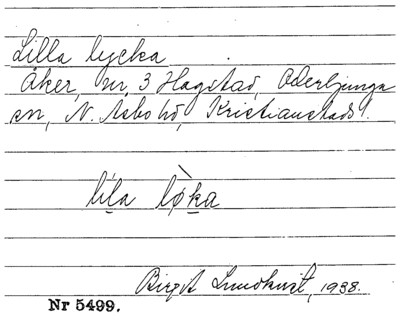 Lilla lycka
Åker, nr 3 Hagstad, Oderljunga
sn, N. Åsbo hd, Kristianstads l.
lịla lø̀ḳa
Birgit Lundkvist, 1938.
Nr 5499.